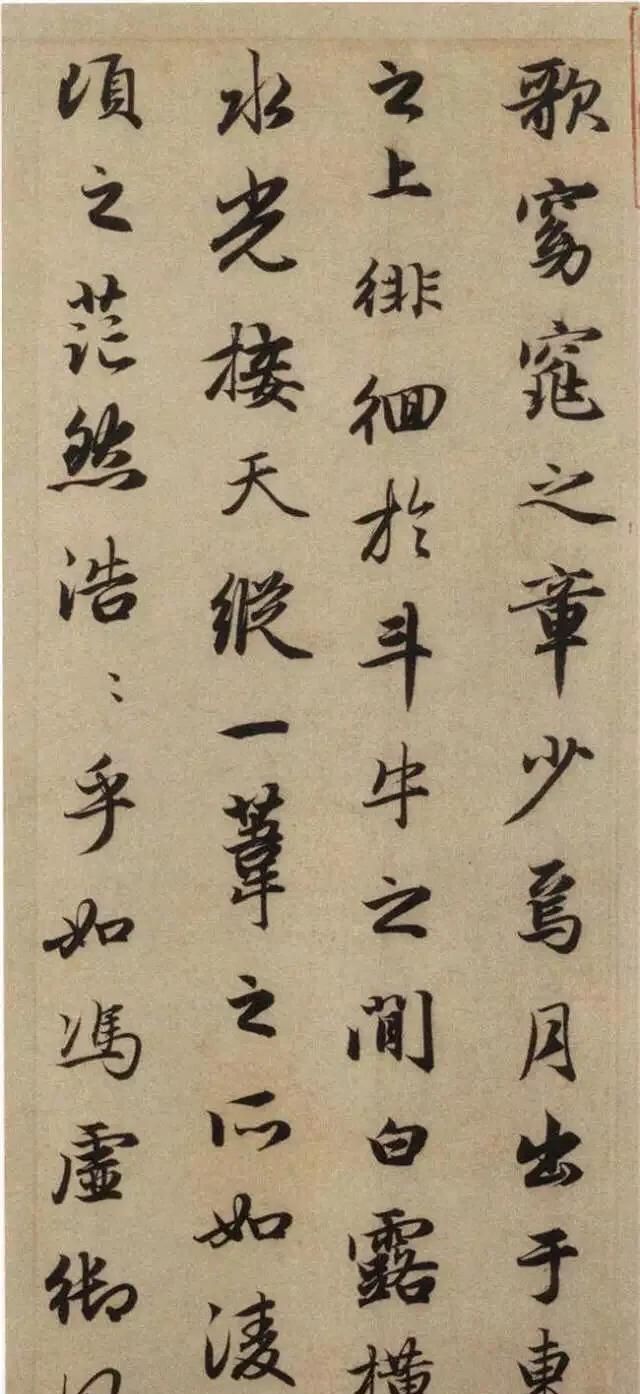 歌窈窕之章少焉月出于東
之上徘徊於斗牛之間白露橫
水光接天縱一葦之所如凌
頃之茫然浩〻乎如馮虛御